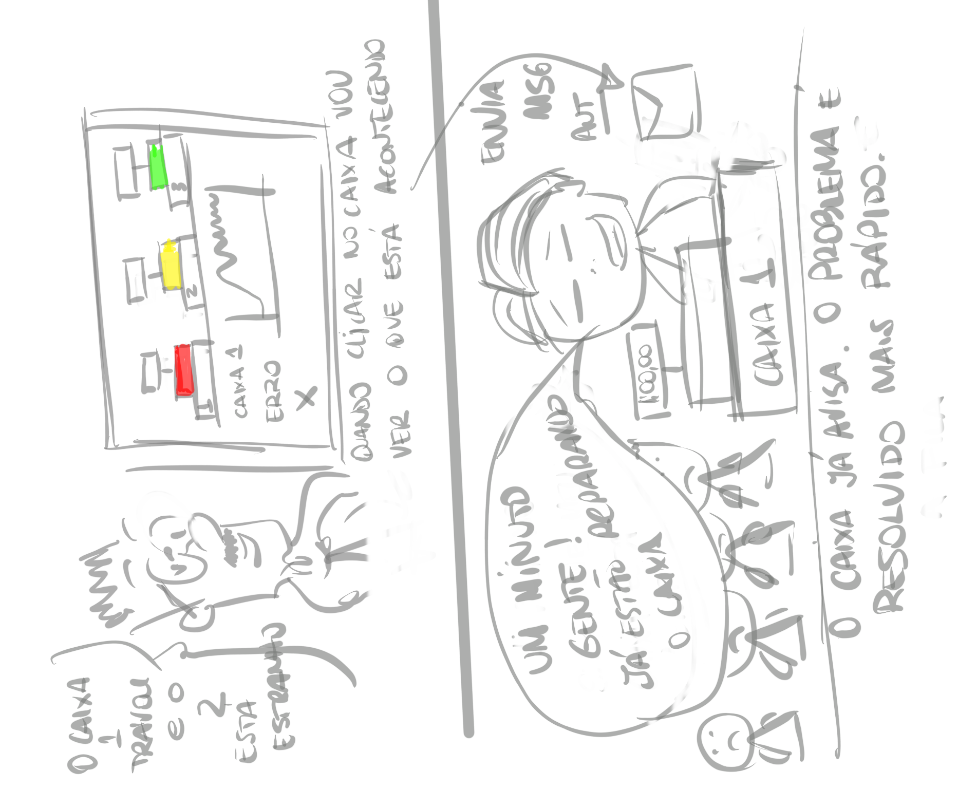 O CAIXA
1
TRAVOU
e O
2
ESTA
ESTRANHO
1
2
3
CAIXA 1
ERRO
X
QUANDO CLICAR NO CAIXA VOU
VER O QUE ESTÁ ACONTECENDO
UM MINUTO
GENTE!
JÁ ESTÃO REPARANDO
O CAIXA
100,00
CAIXA 1
ENVIA
MSG
AUT
O CAIXA JÁ AVISA. O PROBLEMA E
RESOLVIDO MAIS RÁPIDO.